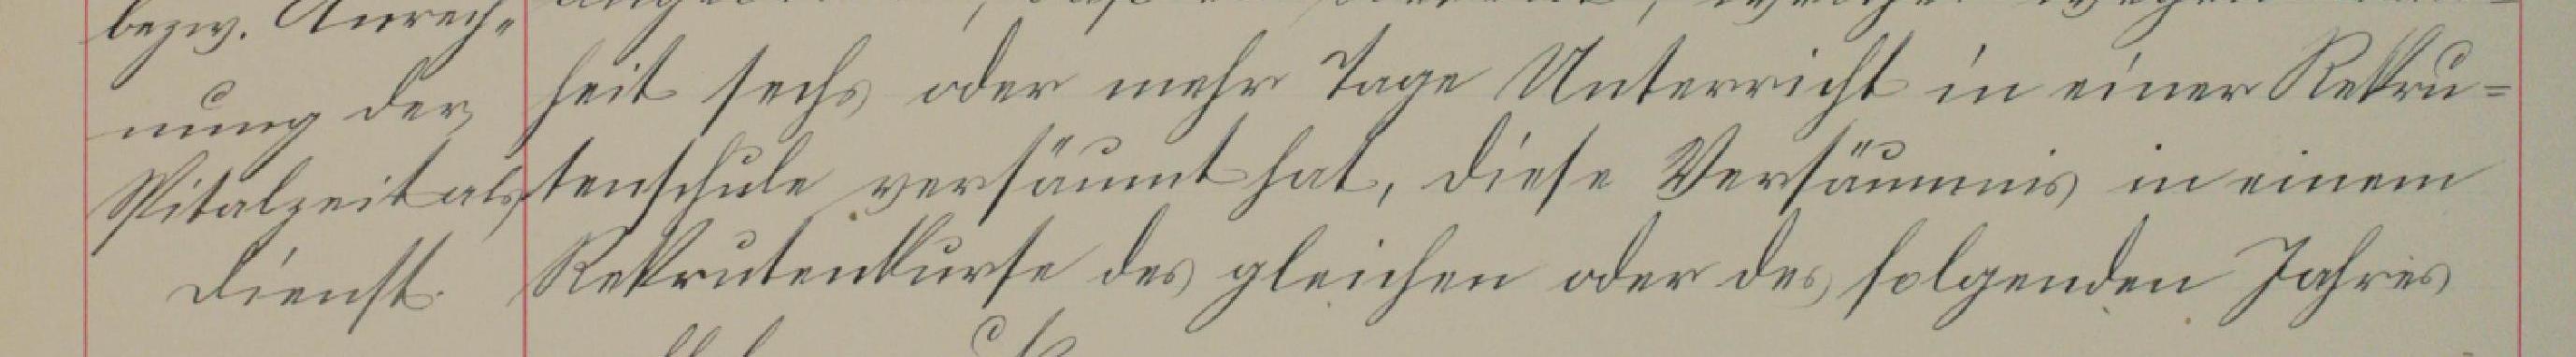 bezw. Anrech-
nung der
Spitalzeit als
Dienst.
heit sechs oder mehr Tage Unterricht in einer Rekru-
tenschule versäumt hat, diese Versäumnis in einem
Rekrutenkurse des gleichen oder des folgenden Jahres